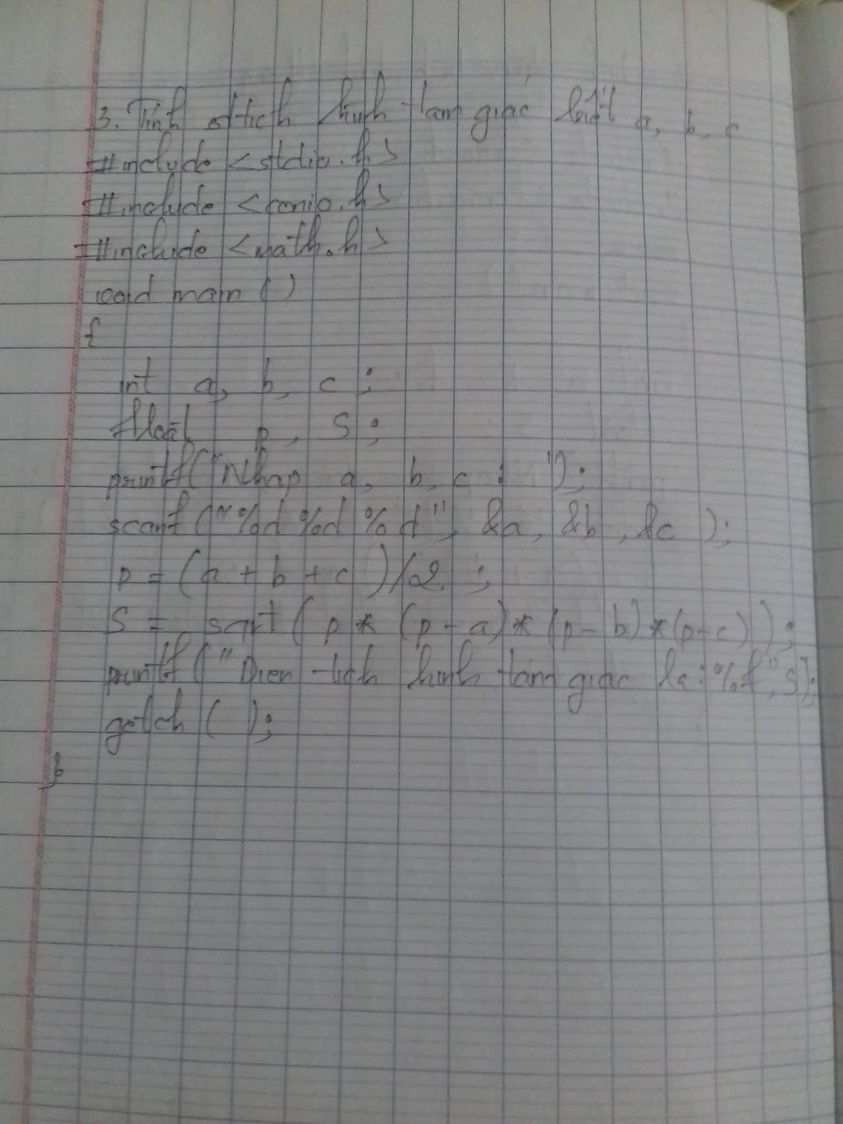 3. Tính dtích hình tam giác biết a, b, c
#include <stdio.h>
#include <conio.h>
#include <math.h>
void main ()
{
int a, b, c ;
float p, S ;
printf("Nhap a, b, c : ");
scanf ("%d %d %d", &a, &b, &c );
p = (a + b + c )/2 ;
S = sqrt( p * (p - a) * (p - b) * (p - c) );
printf ("Dien tich hinh tam giac la :%f", S);
getch ( );
}